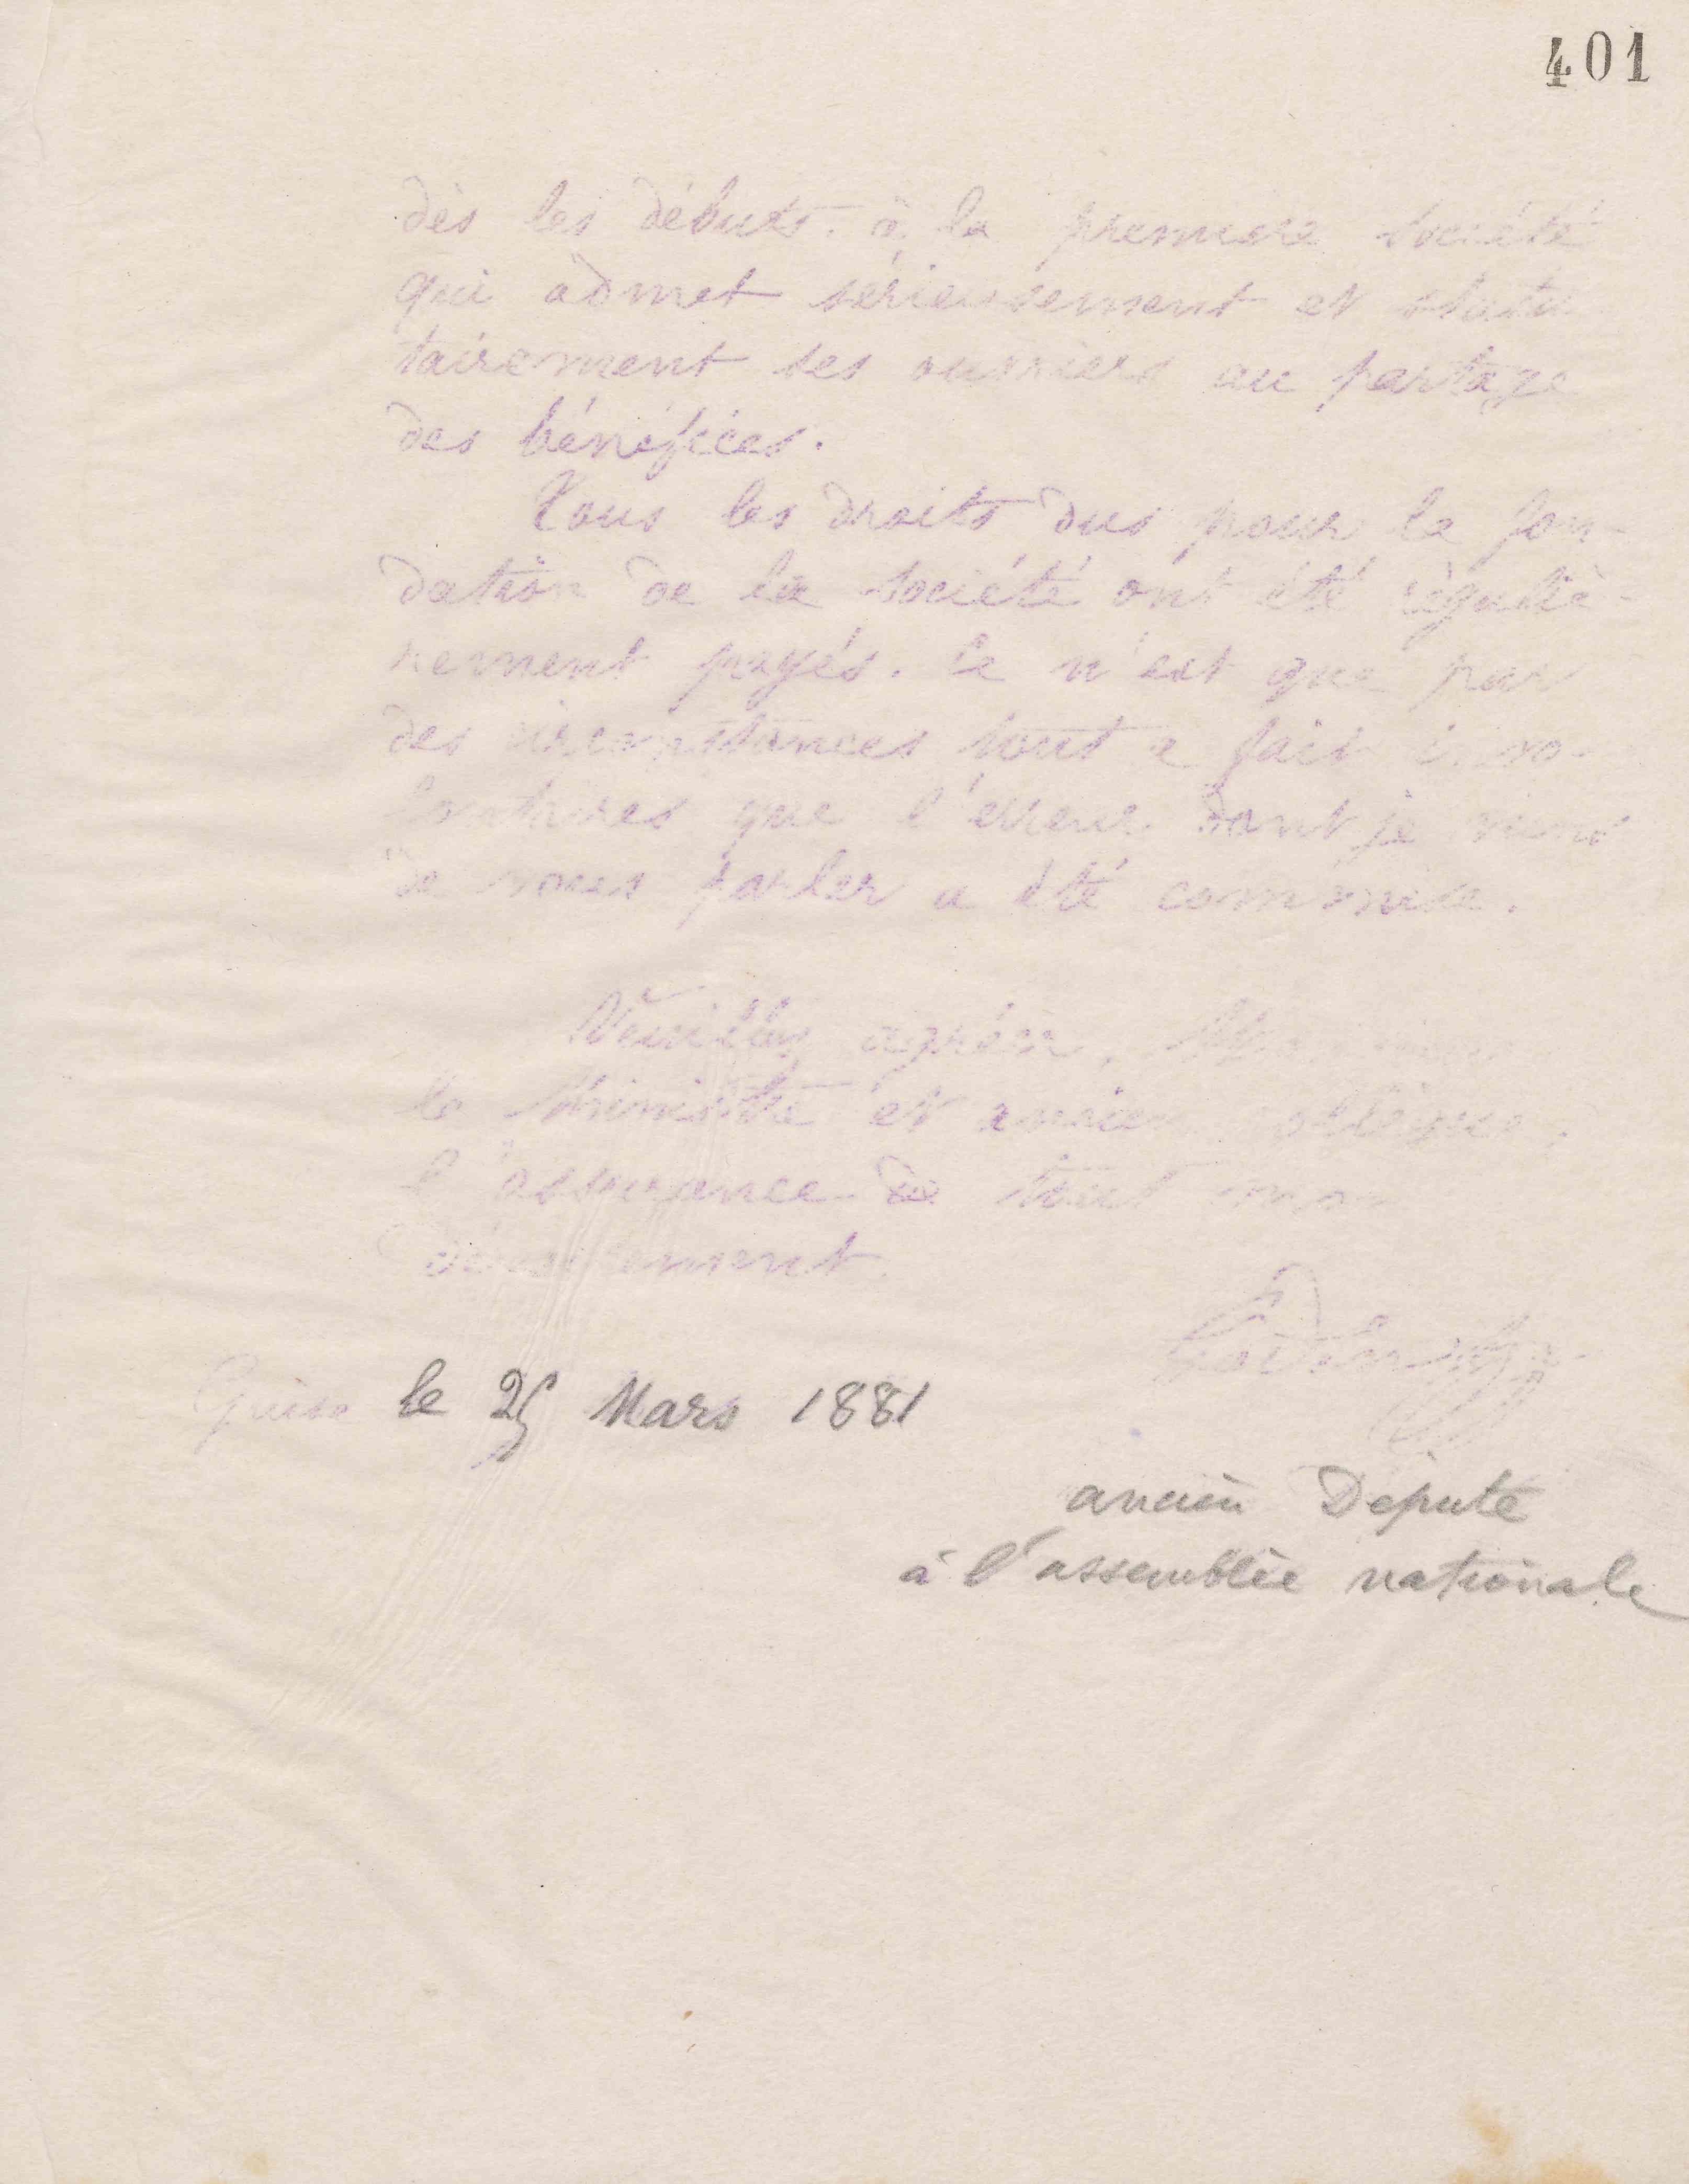 401
dès les débuts à la première société
qui admet sérieusement et statu-
tairement ses ouvriers au partage
des bénéfices.
Tous les droits dus pour la fon-
dation de la société ont été réguliè-
rement payés. Ce n'est que par
des circonstances tout a fait invo-
lontaires que l'erreur dont je viens
de vous parler a été commise.
Veuillez agréer,
le Ministre et ancien collègue,
l'assurance de tout mon
dévouement.
Godin
Guise le 25 Mars 1881
ancien Député
à l'assemblée nationale